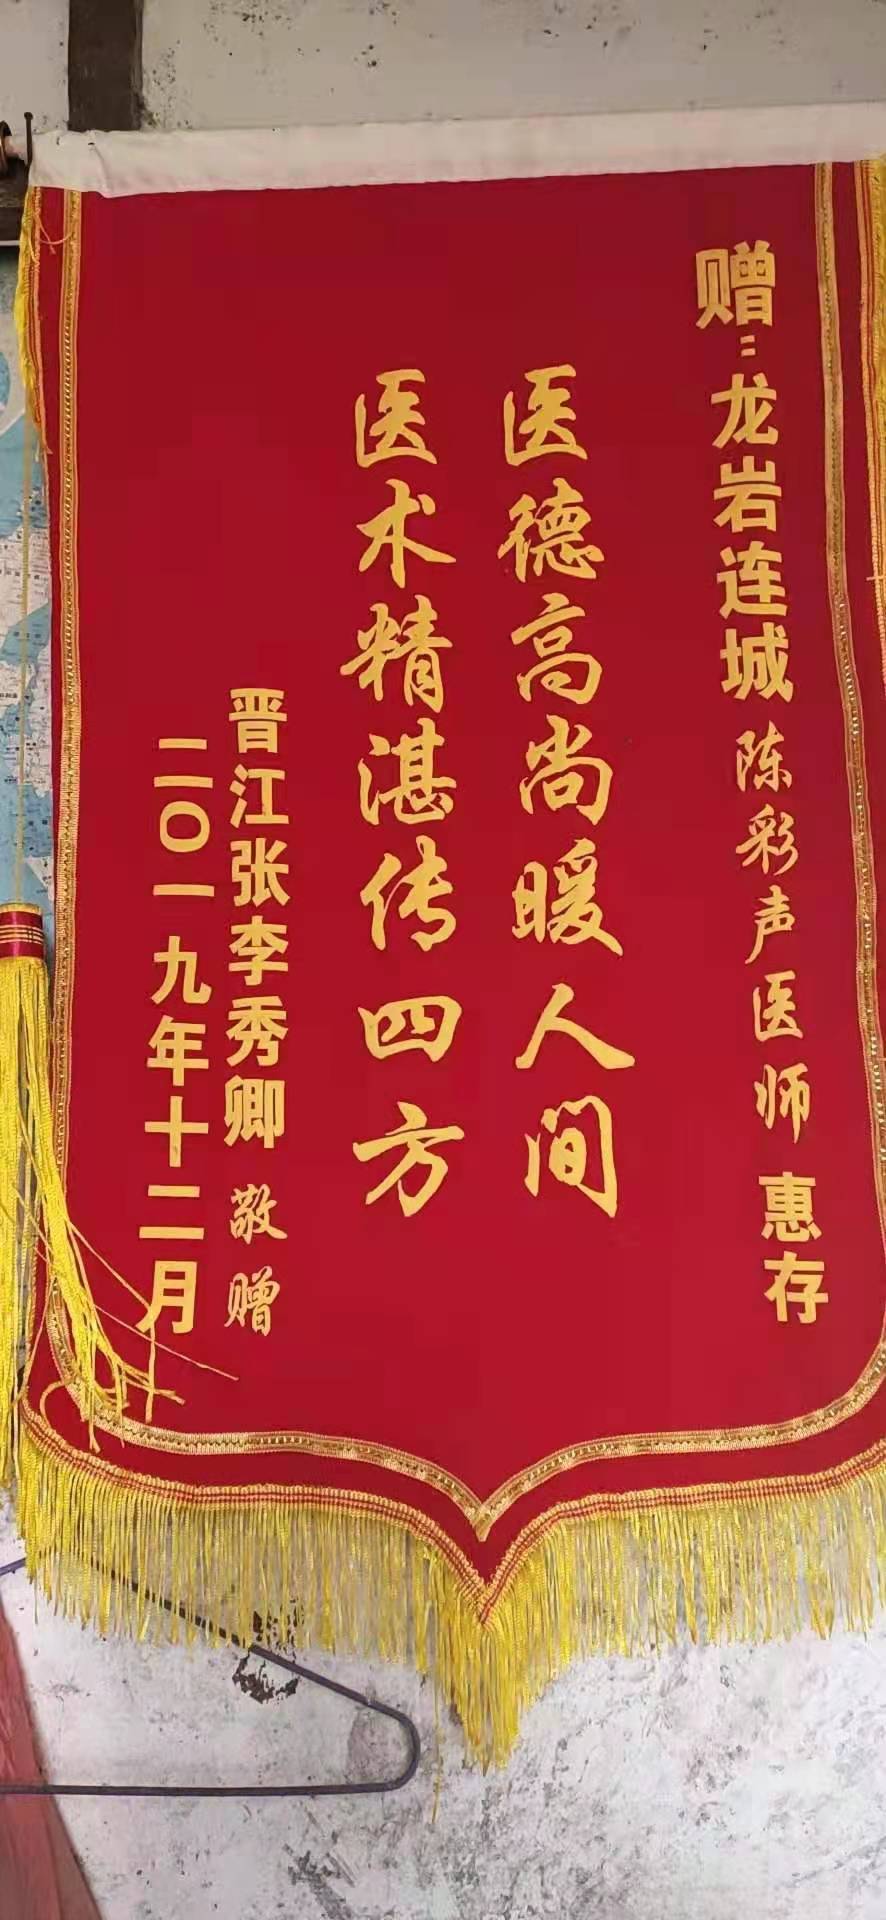 赠：龙岩连城陈彩声医师 惠存
医德高尚暖人间
医术精湛传四方
晋江张李秀卿 敬赠
二〇一九年十二月